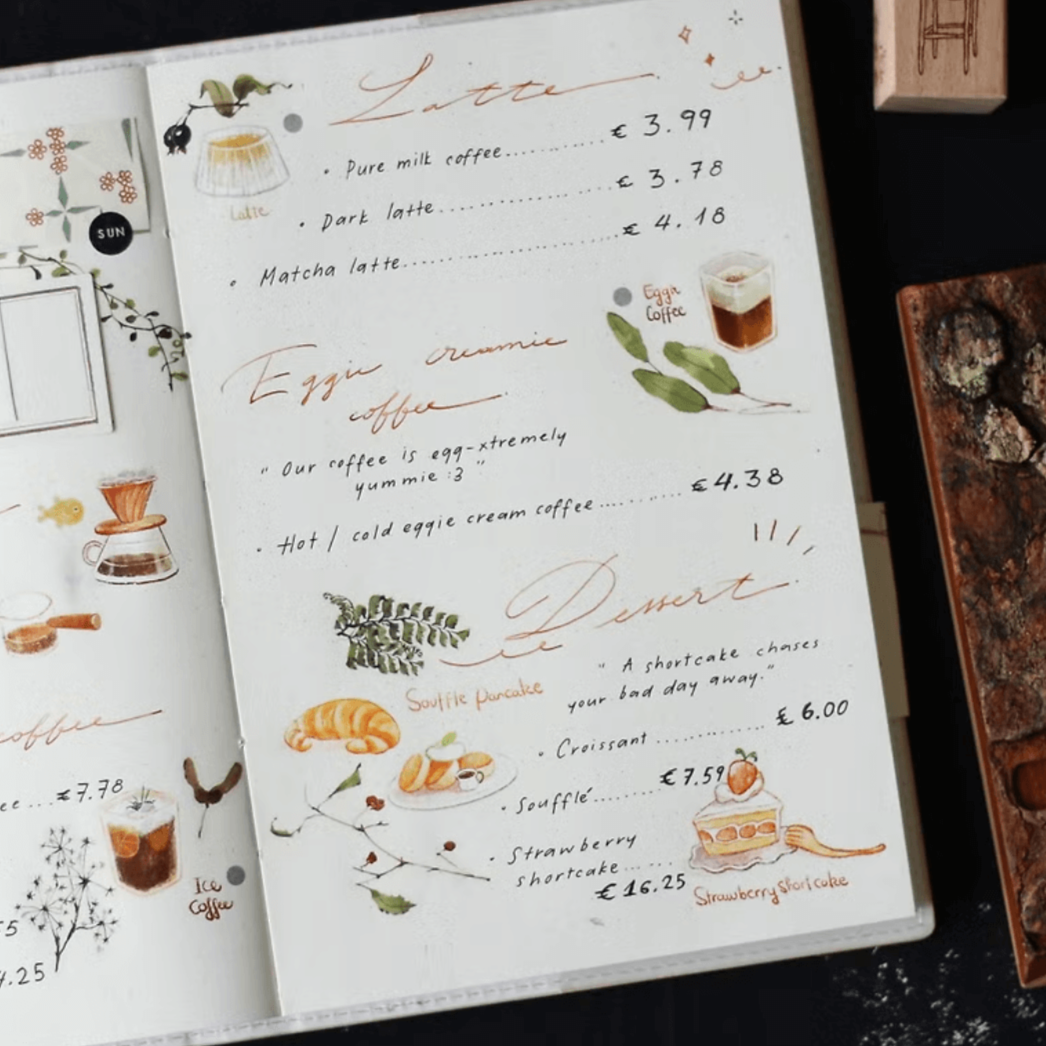 SUN
coffee
ee...€7.78
Ice
Coffee
4.25
Latte
Latte
• Pure milk coffee.............. € 3.99
• Dark latte....................... € 3.78
• Matcha latte............................ € 4.18
Eggie
Coffee
Eggie creamie
coffee
" Our coffee is egg-xtremely
yummie :3 "
• Hot / cold eggie cream coffee........... €4.38
Dessert
" A shortcake chases
your bad day away."
Souffle pancake
• Croissant .............. € 6.00
• Soufflé......... €7.59
• Strawberry
shortcake........
€ 16.25
Strawberry shortcake